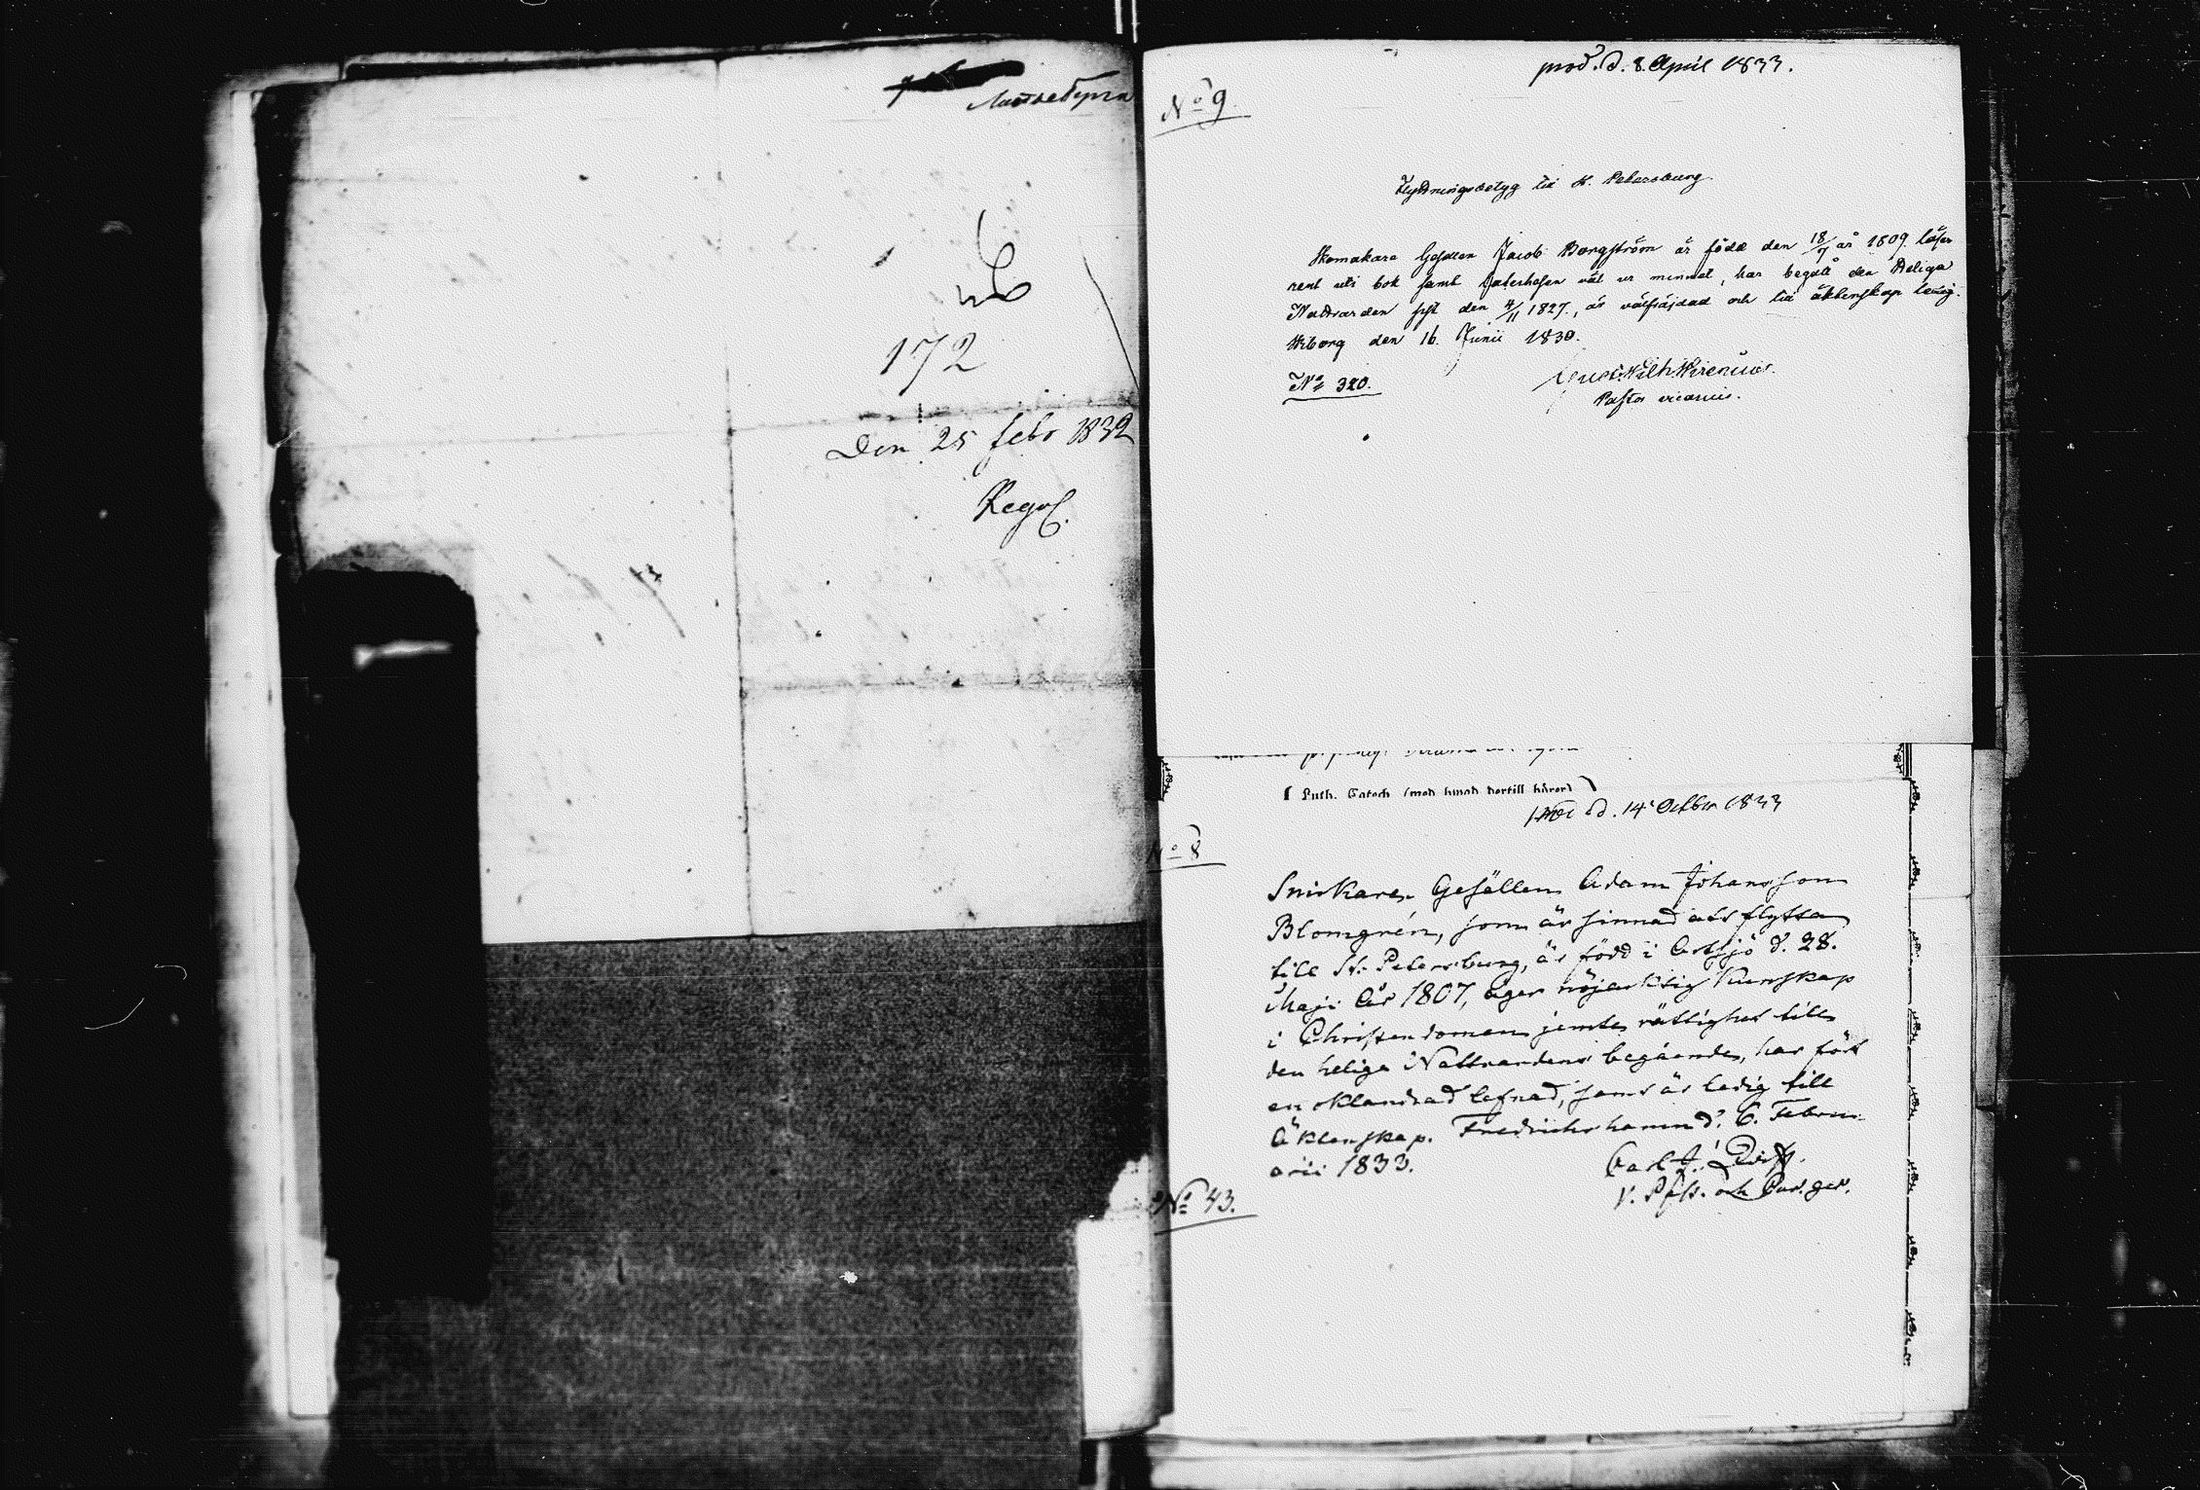 172
Den 25 febr 1832
prod. d. 8. April 1833.
No 9.
Flyttningsbetyg till St. Petersburg.
Skomakare Gesällen Jacob Borgström är född den 18/7 år 1809. läser
rent uti bok samt Catechesen väl ur minnet, har begått den Heliga
Nattvarden sist den 4/11 1827., är välfräjdad och till äktenskap ledig.
Wiborg den 16. Junii 1830.
No 320.
Gust. Wilh. Wirenius.
Pastor vicarius.
Luth. Catech. (med hwad dertill hörer)
d. 14 Octbr 1833
No 8
Snickare Gesällen Adam Johansson
Blomgrén, som är sinnad att flytta
till St. Petersburg, är född i Artsjö d. 28.
Maji år 1807, äger nöjaktig kunskap
i Christendomen jemte rättighet till
den heliga Nattvardens begående, har fört
en oklandrad lefnad, samt är ledig till
Äktenskap. Fredrichshamn d. 6. Febru-
arii 1833.
Carl J.
V. Past. och
No 43.